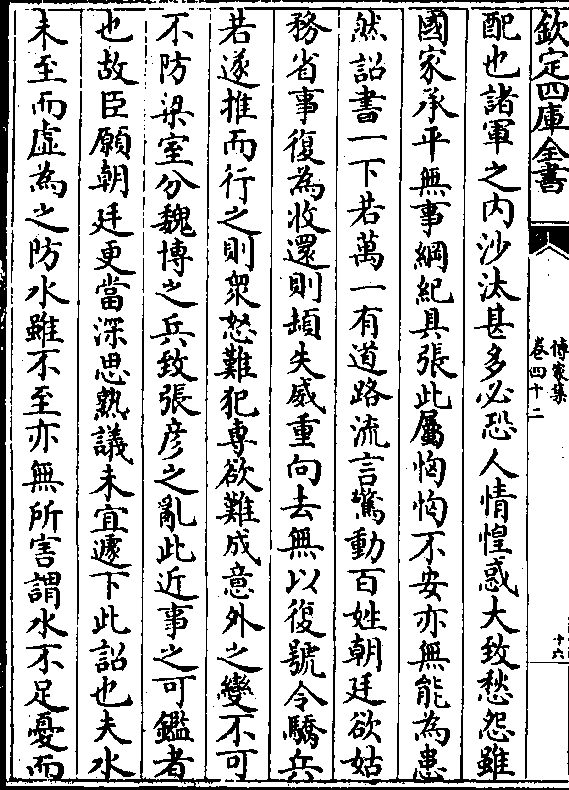 欽定四庫全書
傳家集
卷四十二
十六
配也諸軍之内沙汰甚多必恐人情惶惑大致愁怨雖
國家承平無事綱紀具張此屬恟恟不安亦無能為患
然詔書一下若萬一有道路流言驚動百姓朝廷欲姑
務省事復為收還則頓失威重向去無以復號令驕兵
若遂推而行之則衆怒難犯専欲難成意外之變不可
不防梁室分魏博之兵致張彦之亂此近事之可鑑者
也故臣願朝廷更當深思熟議未宜遽下此詔也夫水
未至而虚為之防水雖不至亦無所害謂水不足憂而